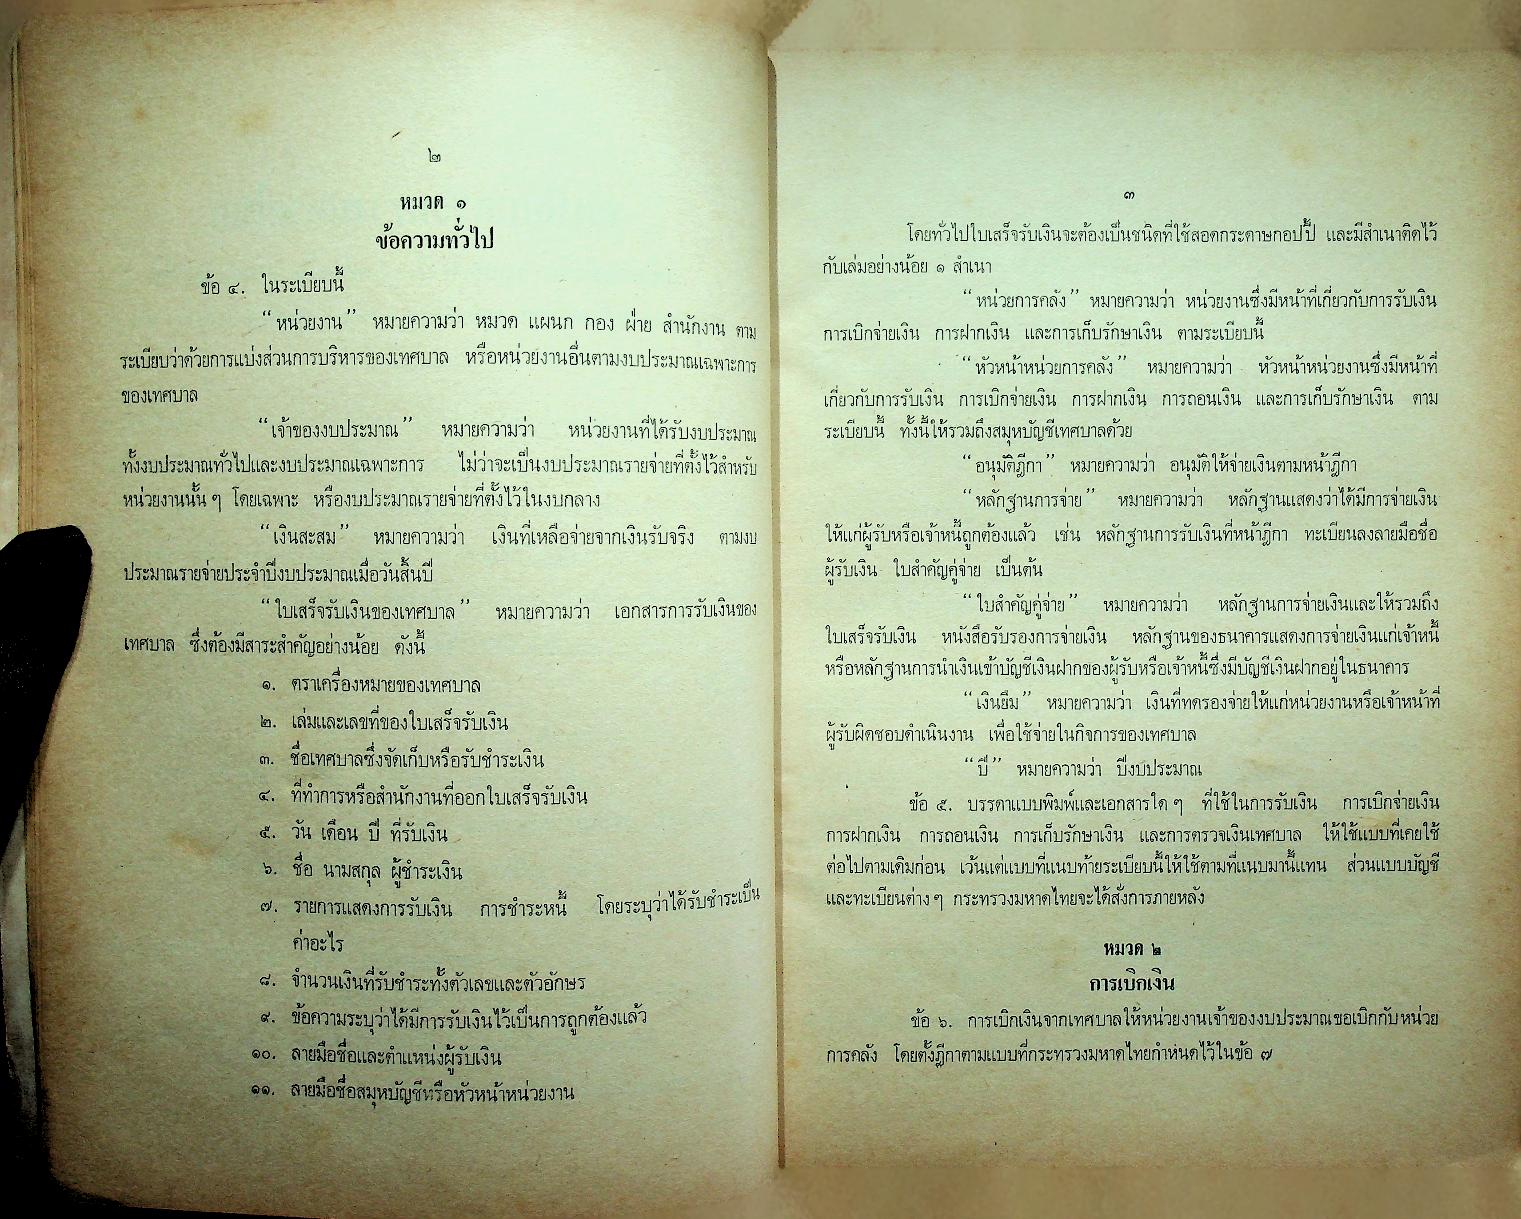 ๒
หมวด ๑
ข้อความทั่วไป
ข้อ ๔. ในระเบียบนี้
“หน่วยงาน” หมายความว่า หมวด แผนก กอง ฝ่าย สำนักงาน ตาม
ระเบียบว่าด้วยการแบ่งส่วนการบริหารของเทศบาล หรือหน่วยงานอื่นตามงบประมาณเฉพาะการ
ของเทศบาล
“เจ้าของงบประมาณ” หมายความว่า หน่วยงานที่ได้รับงบประมาณ
ทั้งงบประมาณทั่วไปและงบประมาณเฉพาะการ ไม่ว่าจะเป็นงบประมาณรายจ่ายที่ตั้งไว้สำหรับ
หน่วยงานนั้น ๆ โดยเฉพาะ หรืองบประมาณรายจ่ายที่ตั้งไว้ในงบกลาง
“เงินสะสม” หมายความว่า เงินที่เหลือจ่ายจากเงินรับจริง ตามงบ
ประมาณรายจ่ายประจำปีงบประมาณเมื่อวันสิ้นปี
“ใบเสร็จรับเงินของเทศบาล” หมายความว่า เอกสารการรับเงินของ
เทศบาล ซึ่งต้องมีสาระสำคัญอย่างน้อย ดังนี้
๑. ตราเครื่องหมายของเทศบาล
๒. เล่มและเลขที่ของใบเสร็จรับเงิน
๓. ชื่อเทศบาลซึ่งจัดเก็บหรือรับชำระเงิน
๔. ที่ทำการหรือสำนักงานที่ออกใบเสร็จรับเงิน
๕. วัน เดือน ปี ที่รับเงิน
๖. ชื่อ นามสกุล ผู้ชำระเงิน
๗. รายการแสดงการรับเงิน การชำระหนี้ โดยระบุว่าได้รับชำระเป็น
ค่าอะไร
๘. จำนวนเงินที่รับชำระทั้งตัวเลขและตัวอักษร
๙. ข้อความระบุว่าได้มีการรับเงินไว้เป็นการถูกต้องแล้ว
๑๐. ลายมือชื่อและตำแหน่งผู้รับเงิน
๑๑. ลายมือชื่อสมุหบัญชีหรือหัวหน้าหน่วยงาน
๓
โดยทั่วไปใบเสร็จรับเงินจะต้องเป็นชนิดที่ใช้สอดกระดาษกอปปี้ และมีสำเนาติดไว้
กับเล่มอย่างน้อย ๑ สำเนา
“หน่วยการคลัง” หมายความว่า หน่วยงานซึ่งมีหน้าที่เกี่ยวกับการรับเงิน
การเบิกจ่ายเงิน การฝากเงิน และการเก็บรักษาเงิน ตามระเบียบนี้
“หัวหน้าหน่วยการคลัง” หมายความว่า หัวหน้าหน่วยงานซึ่งมีหน้าที่
เกี่ยวกับการรับเงิน การเบิกจ่ายเงิน การฝากเงิน การถอนเงิน และการเก็บรักษาเงิน ตาม
ระเบียบนี้ ทั้งนี้ให้รวมถึงสมุหบัญชีเทศบาลด้วย
“อนุมัติฎีกา” หมายความว่า อนุมัติให้จ่ายเงินตามหน้าฎีกา
“หลักฐานการจ่าย” หมายความว่า หลักฐานแสดงว่าได้มีการจ่ายเงิน
ให้แก่ผู้รับหรือเจ้าหนี้ถูกต้องแล้ว เช่น หลักฐานการรับเงินที่หน้าฎีกา ทะเบียนลงลายมือชื่อ
ผู้รับเงิน ใบสำคัญคู่จ่าย เป็นต้น
“ใบสำคัญคู่จ่าย” หมายความว่า หลักฐานการจ่ายเงินและให้รวมถึง
ใบเสร็จรับเงิน หนังสือรับรองการจ่ายเงิน หลักฐานของธนาคารแสดงการจ่ายเงินแก่เจ้าหนี้
หรือหลักฐานการนำเงินเข้าบัญชีเงินฝากของผู้รับหรือเจ้าหนี้ซึ่งมีบัญชีเงินฝากอยู่ในธนาคาร
“เงินยืม” หมายความว่า เงินที่ทดรองจ่ายให้แก่หน่วยงานหรือเจ้าหน้าที่
ผู้รับผิดชอบดำเนินงาน เพื่อใช้จ่ายในกิจการของเทศบาล
“ปี” หมายความว่า ปีงบประมาณ
ข้อ ๕. บรรดาแบบพิมพ์และเอกสารใด ๆ ที่ใช้ในการรับเงิน การเบิกจ่ายเงิน
การฝากเงิน การถอนเงิน การเก็บรักษาเงิน และการตรวจเงินเทศบาล ให้ใช้แบบที่เคยใช้
ต่อไปตามเดิมก่อน เว้นแต่แบบที่แนบท้ายระเบียบนี้ให้ใช้ตามที่แนบมานี้แทน ส่วนแบบบัญชี
และทะเบียนต่าง ๆ กระทรวงมหาดไทยจะได้สั่งการภายหลัง
หมวด ๒
การเบิกเงิน
ข้อ ๖. การเบิกเงินจากเทศบาลให้หน่วยงานเจ้าของงบประมาณขอเบิกกับหน่วย
การคลัง โดยตั้งฎีกาตามแบบที่กระทรวงมหาดไทยกำหนดไว้ในข้อ ๗